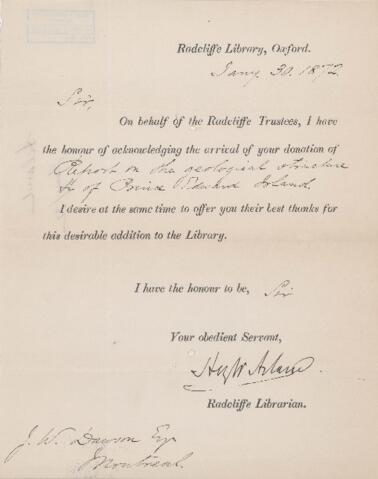 Radcliffe Library, Oxford.
Jany. 30. 1872
Sir,
On behalf of the Radcliffe Trustees, I have
the honour of acknowledging the arrival of your donation of
Report on the geological structure
&c of Prince Edward Island.
I desire at the same time to offer you their best thanks for
this desirable addition to the Library.
I have the honour to be, Sir
Your obedient Servant,
Radcliffe Librarian.
J. W. Dawson Esq
Montreal.